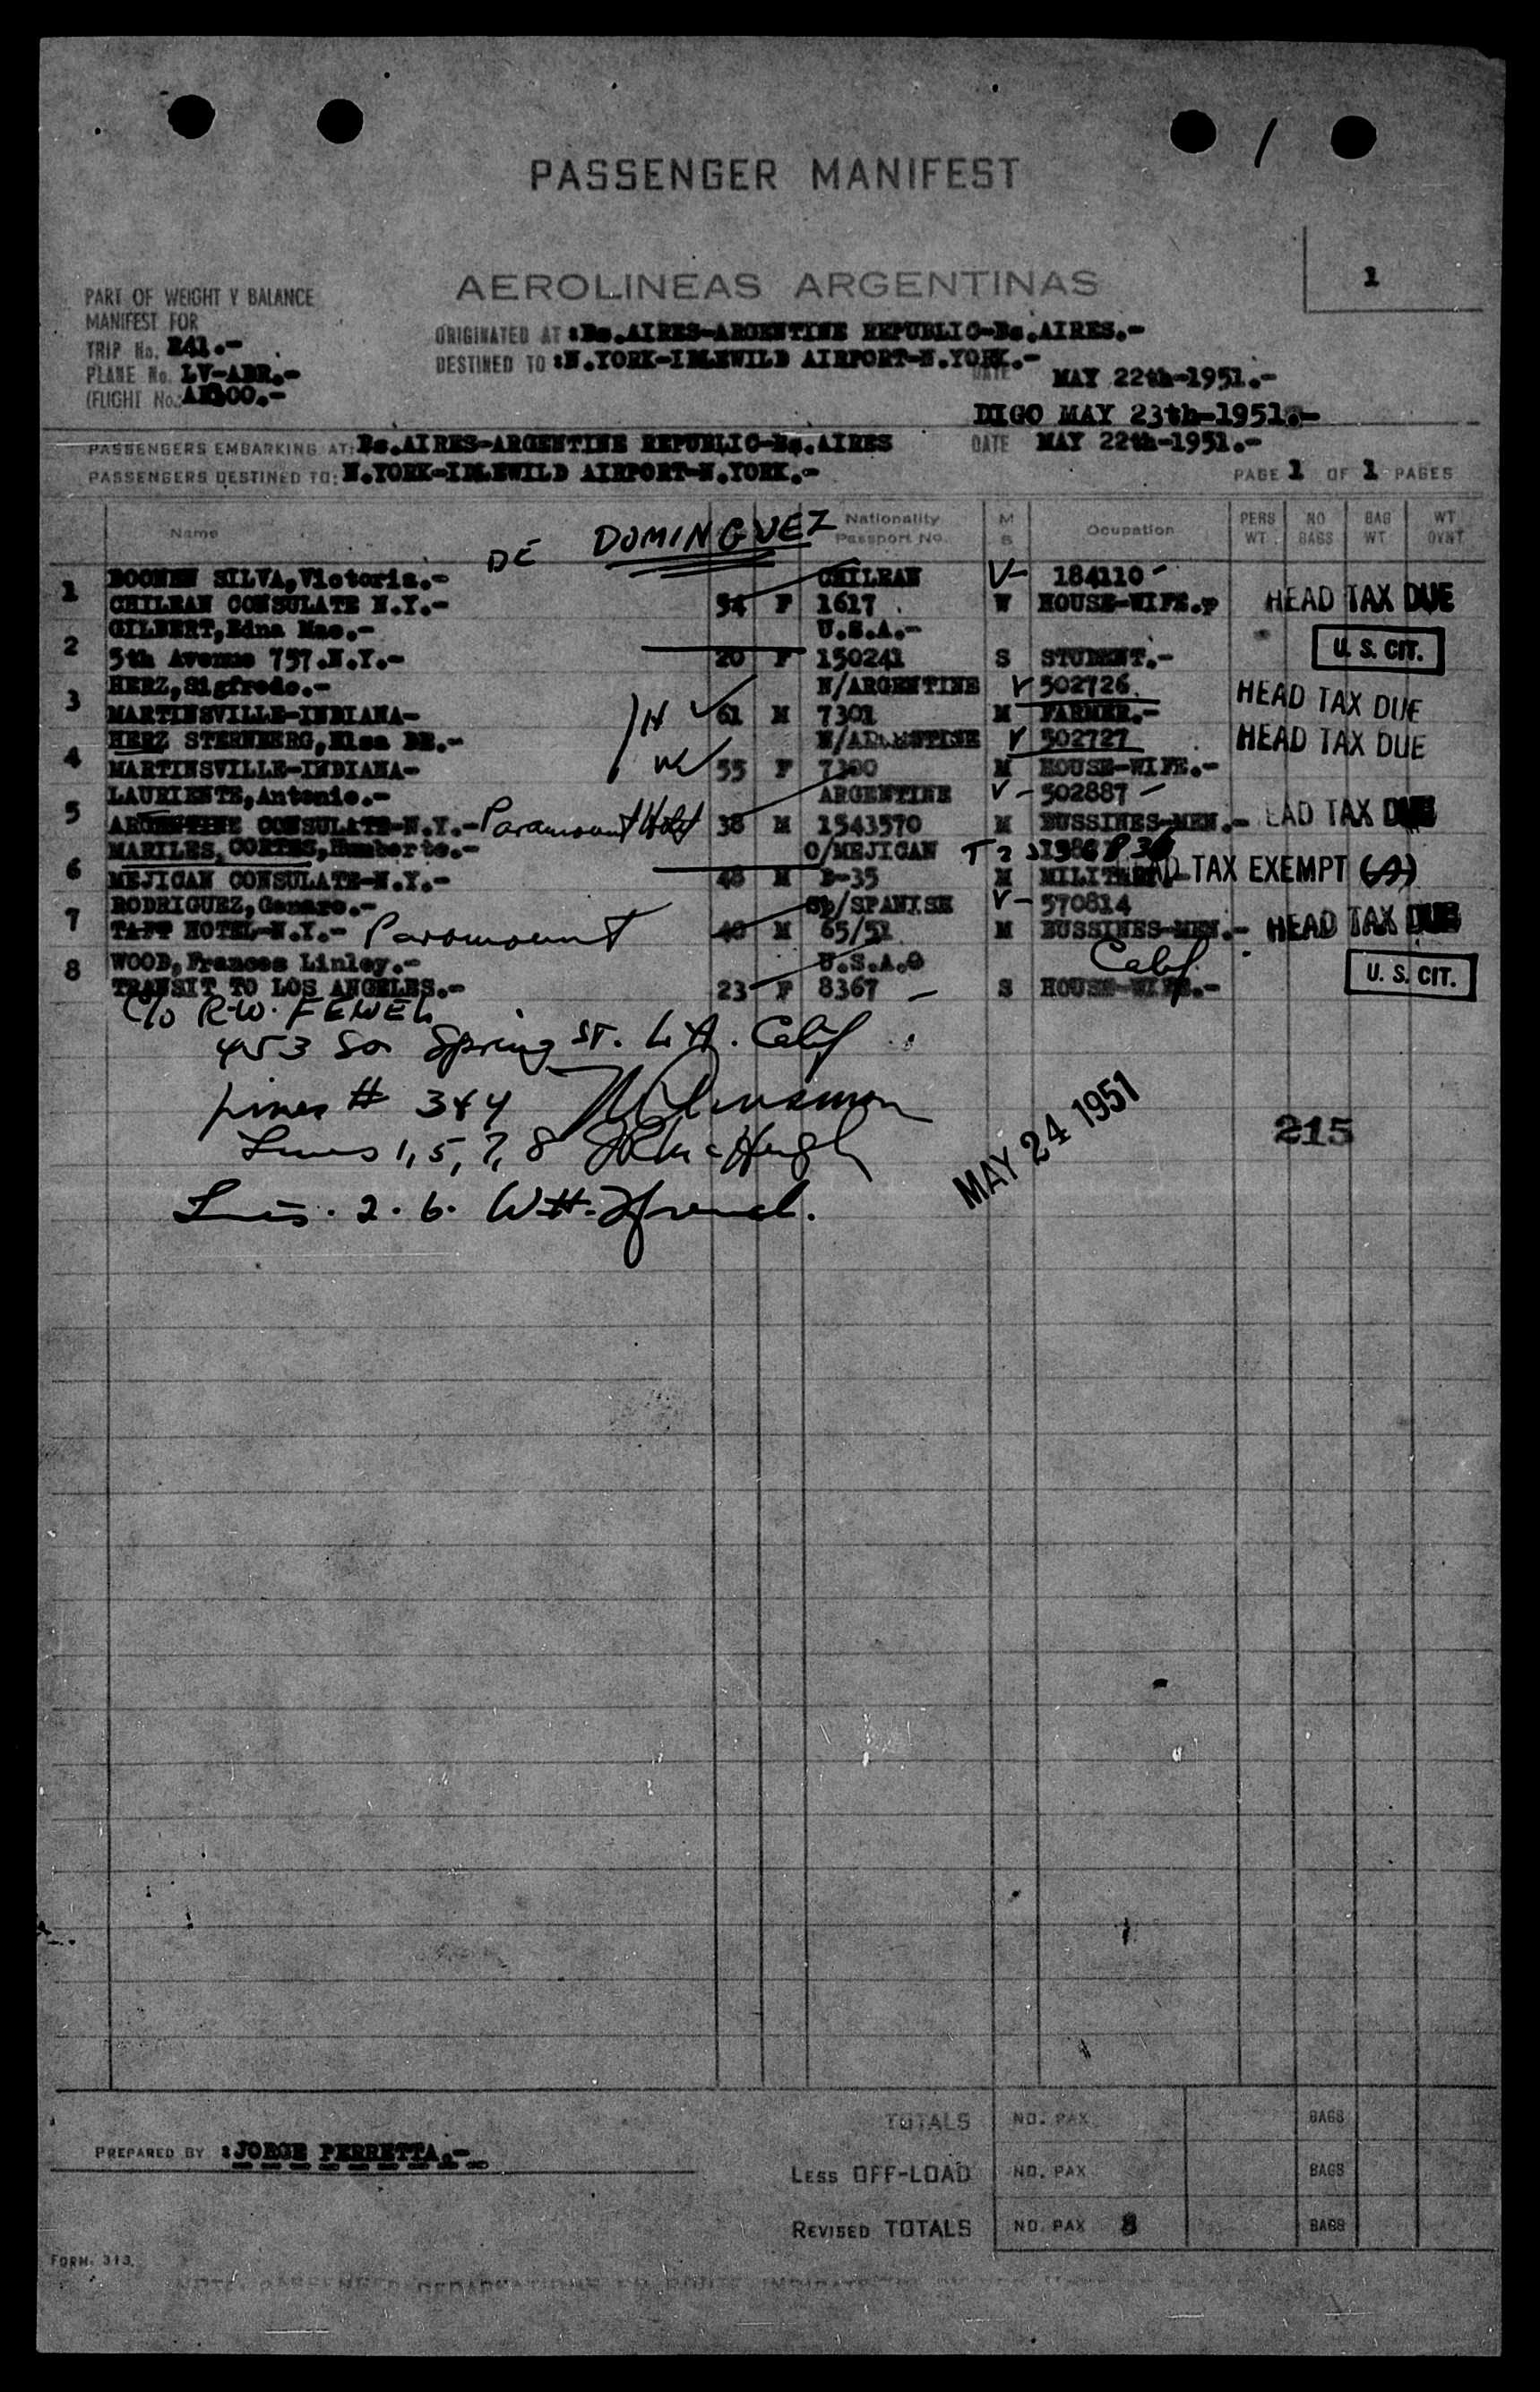 PASSENGER MANIFEST
1
AEROLINEAS ARGENTINAS
PART OF WEIGHT Y BALANCE
MANIFEST FOR
TRIP No. E41.-
PLANE No. LV-ABR.-
(FLIGHT No.:
ORIGINATED AT :Bs.AIRES-ARGENTINE REPUBLIC-Bs.AIRES.-
DESTINED TO :N.YORK-IDLEWILD AIRPORT-N.YORK.-
DATE MAY 22th-1951.-
DIGO MAY 23th-1951.-
PASSENGERS EMBARKING AT: Bs.AIRES-ARGENTINE REPUBLIC-Bs.AIRES DATE MAY 22th-1951.-
PASSENGERS DESTINED TO: N.YORK-IDLEWILD AIRPORT-N.YORK.- PAGE 1 OF 1 PAGES
Name Nationality Passport No. M S Ocupation PERS WT. NO BAGS BAG WT WT OVNT
DE DOMINGUEZ
1 BOONEN SILVA,Victoria.- CHILEAN V- 184110-
CHILEAN CONSULATE N.Y.- 54 F 1617 W HOUSE-WIFE. HEAD TAX DUE
2 GILBERT,Edna Mae.- U.S.A.-
5th Avenue 757.N.Y.- 20 F 150241 S STUDENT.- U.S. CIT.
3 HERZ,Sigfredo.- N/ARGENTINE V 502726
MARTINSVILLE-INDIANA- H 61 M 7301 M FARMER.- HEAD TAX DUE
4 HERZ STERNBERG,Elsa DE.- V 502727 HEAD TAX DUE
MARTINSVILLE-INDIANA- W 55 F 7300 M HOUSE-WIFE.-
5 LAURIENTE,Antonio.- ARGENTINE V- 502887-
ARGENTINE CONSULATE-N.Y.- Paramount Hotel 38 M 1543570 M BUSSINES-MEN.- EAD TAX DUE
6 MARILES, CORTES,Humberto.- O/MEJICAN
MEJICAN CONSULATE-N.Y.- 48 M D-35 M TAX EXEMPT
7 RODRIGUEZ,Genaro.- Sp/SPANISH V- 570814
TAFT HOTEL-N.Y.- Paramount M 65/51 M BUSSINES-MEN.- HEAD TAX DUE
8 WOOD,Frances Linley.- U.S.A. Calif.
TRANSIT TO LOS ANGELES.- 23 F 8367 S HOUSE-WIFE.- U.S. CIT.
C/O R.W.
453 So Spring ST. L.A. Calif
Lines # 3 & 4
MAY 24 1951
215
Lines 1, 5, 7, 8
Lines. 2. 6.
TOTALS NO. PAX BAGS
PREPARED BY :JORGE PERRETTA.-
LESS OFF-LOAD NO. PAX BAGS
REVISED TOTALS NO. PAX 8 BAGS
FORM. 313.